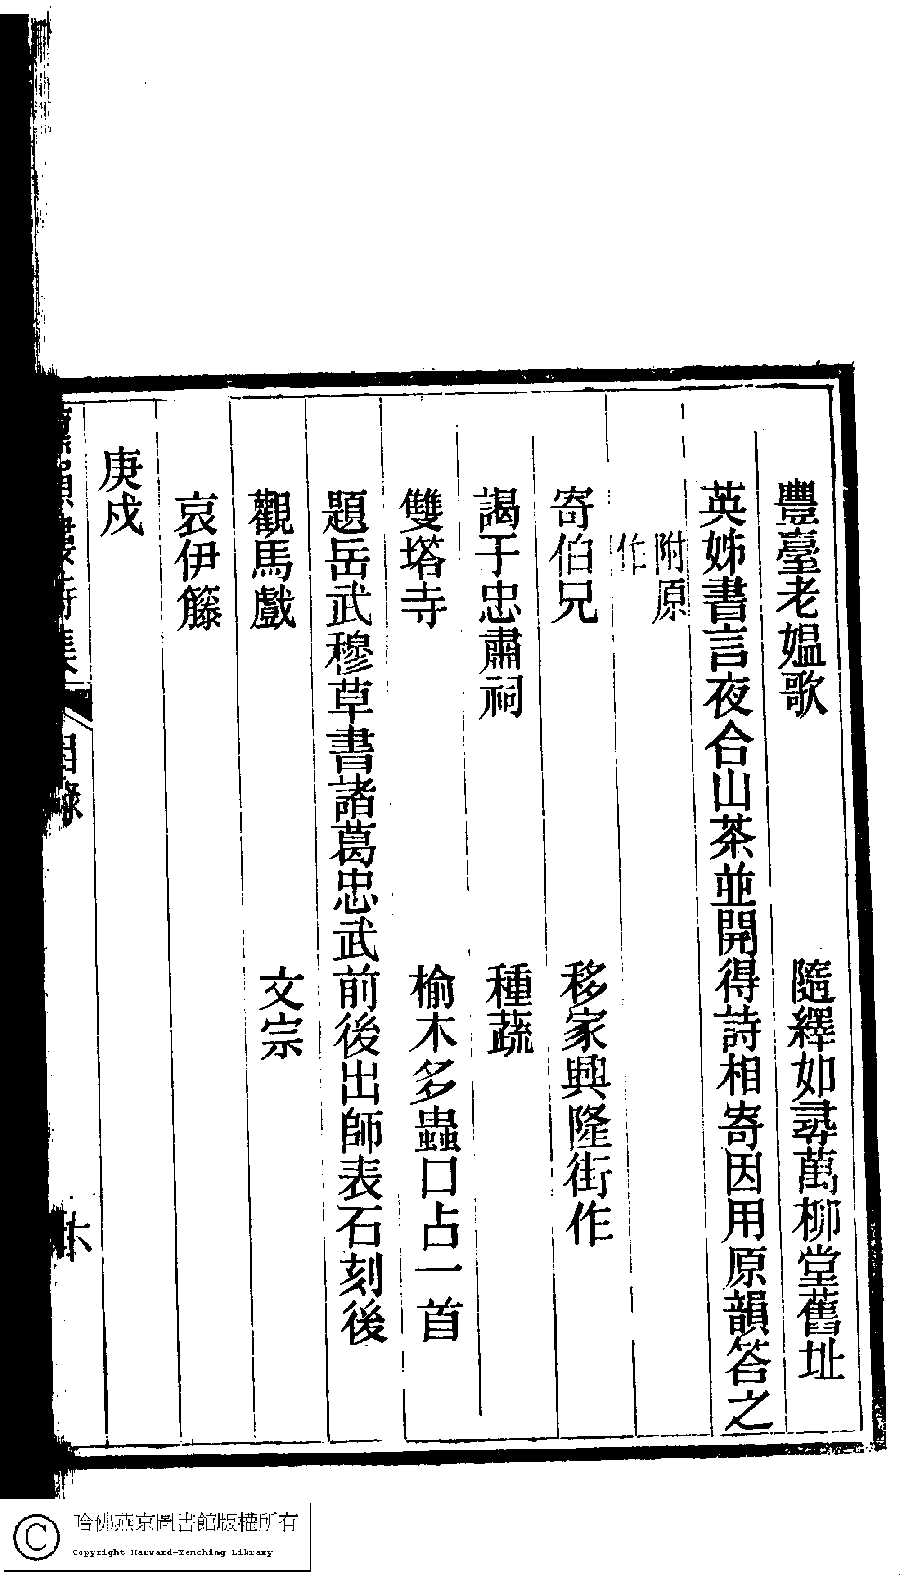 豐臺老媼歌　隨繹如尋萬柳堂舊址
英姊書言夜合山茶並開得詩相寄因用原韻答之
附原
作
寄伯兄　移家興隆街作
謁于忠肅祠　種蔬
雙塔寺　榆木多蟲口占一首
題岳武穆草書諸葛忠武前後出師表石刻後
觀馬戲　文宗
哀伊籐
庚戍
目錄
哈佛燕京圖書館版權所有
Copyright Harvard-Yenching Library